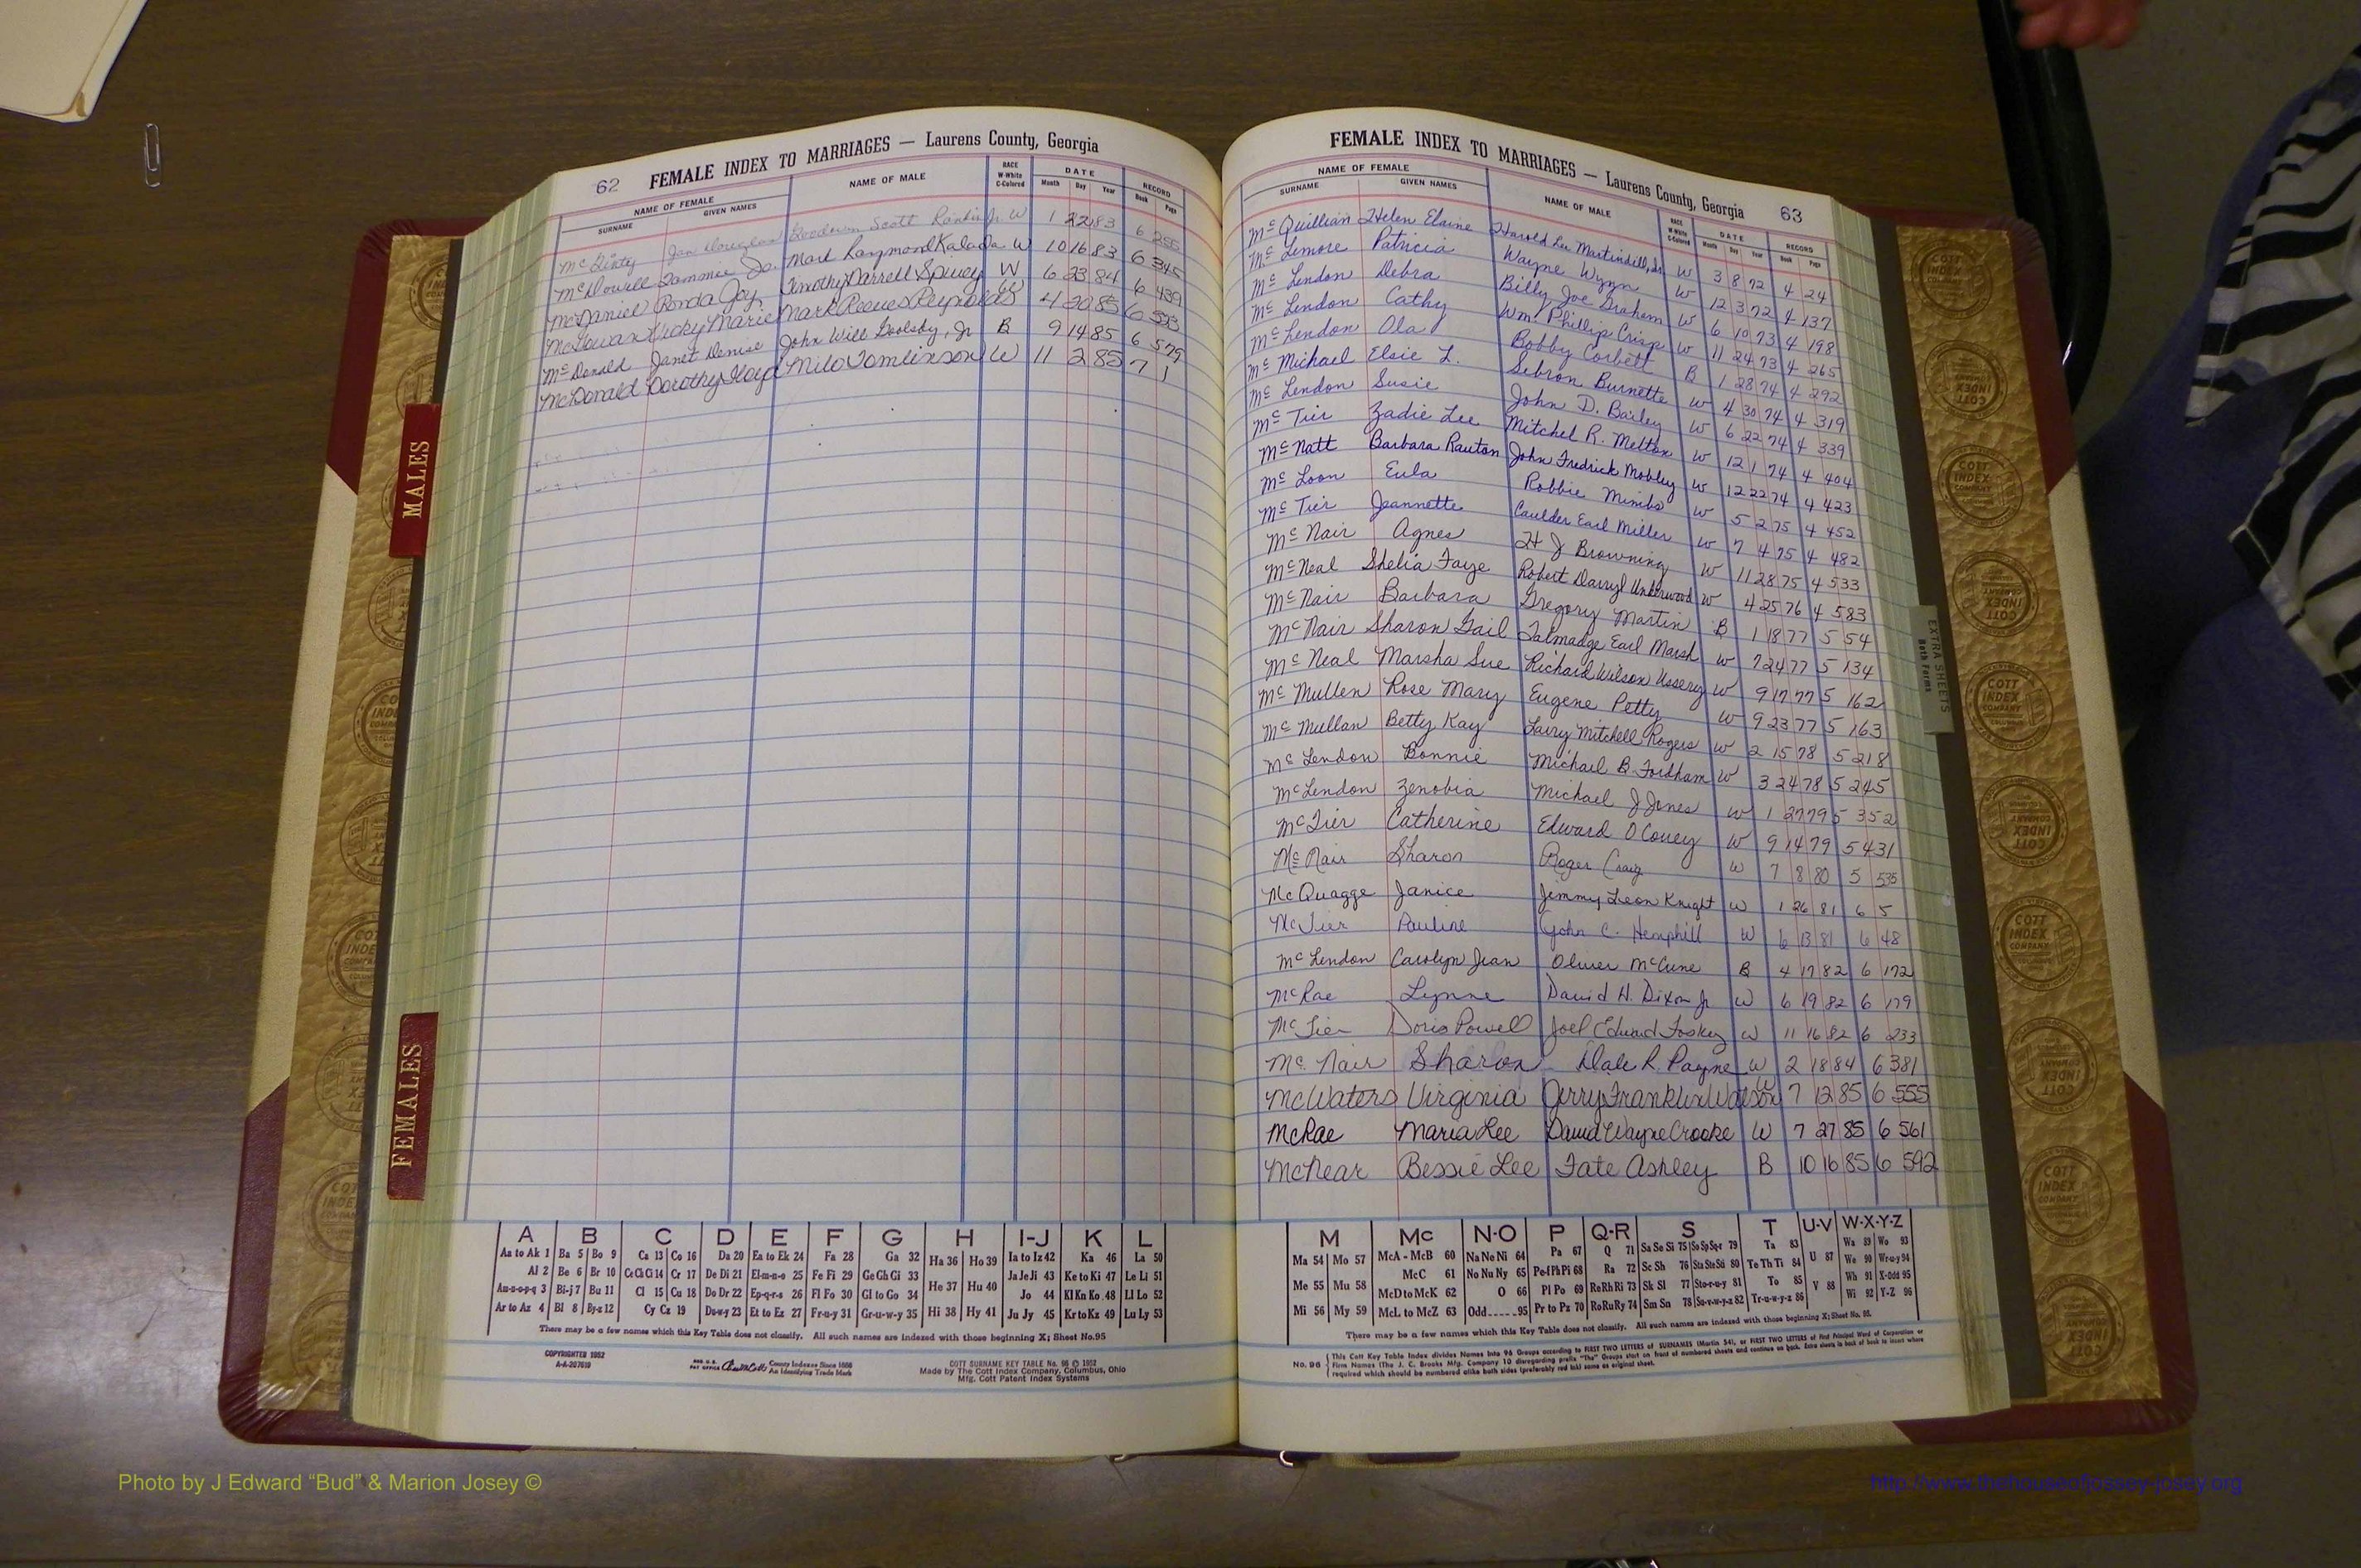 62 FEMALE INDEX TO MARRIAGES — Laurens County, Georgia
NAME OF FEMALE NAME OF MALE RACE W-White C-Colored DATE RECORD
SURNAME GIVEN NAMES Month Day Year Book Page
McGinty Jan Douglas Scott Rankin Jr. W 1 22 83 6 255
McDowell Tammie Jo. Mark Raymond W 10 16 83 6 345
McDaniel Ronda Joy Timothy Darrell Spivey W 6 23 84 6 439
McGowan Vicky Marie Mark Reeves Reynolds W 4 20 85 6 533
McDonald Janet Denise John Will Goolsby, Jr B 9 14 85 6 579
McDonald Dorothy Floyd Milo Tomlinson W 11 2 85 7 1
MALES
FEMALES
A B C D E F G H I-J K L
Aa to Ak 1 Ba 5 Bo 9 Ca 13 Co 16 Da 20 Ea to Ek 24 Fa 28 Ga 32 Ha 36 Ho 39 Ia to Iz 42 Ka 46 La 50
Al 2 Be 6 Br 10 Ce Ch Ci 14 Cr 17 De Di 21 El-m-n-o 25 Fe Fi 29 Ge Gh Gi 33 He 37 Hu 40 Ja Je Ji 43 Ke to Ki 47 Le Li 51
Am-n-o-p-q 3 Bi-j 7 Bu 11 Cl 15 Cu 18 Do Dr 22 Ep-q-r-s 26 Fl Fo 30 Gl to Go 34 Jo 44 Kl Kn Ko 48 Ll Lo 52
Ar to Az 4 Bl 8 By-z 12 Cy Cz 19 Du-w-y 23 Et to Ez 27 Fr-u-y 31 Gr-u-w-y 35 Hi 38 Hy 41 Ju Jy 45 Kr to Kz 49 Lu Ly 53
There may be a few names which this Key Table does not classify. All such names are indexed with those beginning X; Sheet No. 95
COPYRIGHTED 1952
A-A-207619
County Indexes Since 1888
An Identifying Trade Mark
COTT SURNAME KEY TABLE No. 96 © 1952
Made by The Cott Index Company, Columbus, Ohio
Mfg. Cott Patent Index Systems
FEMALE INDEX TO MARRIAGES — Laurens County, Georgia 63
NAME OF FEMALE NAME OF MALE RACE W-White C-Colored DATE RECORD
SURNAME GIVEN NAMES Month Day Year Book Page
McQuillian Helen Elaine Harold Lee Martindill, Jr W 3 8 72 4 24
McLemore Patricia Wayne Wynn W 12 3 72 4 137
McLendon Debra Billy Joe Graham W 6 10 73 4 198
McLendon Cathy Wm Phillip Crisp W 11 24 73 4 265
McLendon Ola Bobby Corbett B 1 28 74 4 292
McMichael Elsie L. Sebron Burnette W 4 30 74 4 319
McLendon Susie John D. Bailey W 6 22 74 4 339
McTier Zadie Lee Mitchel R. Melton W 12 1 74 4 404
McNatt Barbara Rauton John Fredrick Mobley W 12 22 74 4 423
McLoon Eula Robbie Mimbs W 5 2 75 4 452
McTier Jeannette Caulder Earl Miller W 7 4 75 4 482
McNair Agnes H J Browning W 11 28 75 4 533
McNeal Shelia Faye Robert Darryl Underwood W 4 25 76 4 583
McNair Barbara Gregory Martin B 1 18 77 5 54
McNair Sharon Gail Talmadge Earl Marsh W 7 24 77 5 134
McNeal Marsha Sue Richard Wilson Ussery W 9 17 77 5 162
McMullen Rose Mary Eugene Petty W 9 23 77 5 163
McMullan Betty Kay Larry Mitchell Rogers W 2 15 78 5 218
McLendon Bonnie Michael B. Fordham W 3 24 78 5 245
McLendon Zenobia Michael J Jones W 1 27 79 5 352
McTier Catherine Edward O Couey W 9 14 79 5 431
McNair Sharon Roger Craig W 7 8 80 5 535
McQuagge Janice Jemmy Leon Knight W 1 26 81 6 5
McTier Pauline John C. Hemphill W 6 13 81 6 48
McLendon Carolyn Jean Oliver McCune B 4 17 82 6 172
McRae Lynne David H. Dixon Jr W 6 19 82 6 179
McTier Doris Powell Joel Edward Foskey W 11 16 82 6 233
Mc Nair Sharon Dale R. Payne W 2 18 84 6 381
McWaters Virginia Jerry Franklin Watson W 7 12 85 6 555
McRae Maria Lee David Wayne Crooke W 7 27 85 6 561
McNear Bessie Lee Tate Ashley B 10 16 85 6 592
EXTRA SHEETS
Both Forms
M Mc N-O P Q-R S T U-V W-X-Y-Z
Ma 54 Mo 57 McA - McB 60 Na Ne Ni 64 Pa 67 Q 71 Sa Se Si 75 So Sp Sq-r 79 Ta 83 U 87 Wa 89 Wo 93
Me 55 Mu 58 McC 61 No Nu Ny 65 Pe-f Ph Pi 68 Ra 72 Sc Sh 76 Sta Ste Sti 80 Te Th Ti 84 We 90 Wr-u-y 94
McD to McK 62 O 66 Pl Po 69 Re Rh Ri 73 Sk Sl 77 Sto-r-u-y 81 To 85 V 88 Wh 91 X-Odd 95
Mi 56 My 59 McL to McZ 63 Odd 95 Pr to Pz 70 Ro Ru Ry 74 Sm Sn 78 Su-v-w-y-z 82 Tr-u-w-y-z 86 Wi 92 Y-Z 96
There may be a few names which this Key Table does not classify. All such names are indexed with those beginning X; Sheet No. 95.
No. 96 This Cott Key Table Index divides Names into 96 Groups according to FIRST TWO LETTERS of SURNAMES (Martin 54), or FIRST TWO LETTERS of First Principal Word of Corporation or
Firm Names (The J. C. Brooks Mfg. Company 10 disregarding prefix "The" Groups start on front of numbered sheets and continue on back. Extra sheets in back of book to insert where
required which should be numbered alike both sides (preferably red ink) same as original sheet.
Photo by J Edward “Bud” & Marion Josey ©
http://www.thehouseofjossey-josey.org